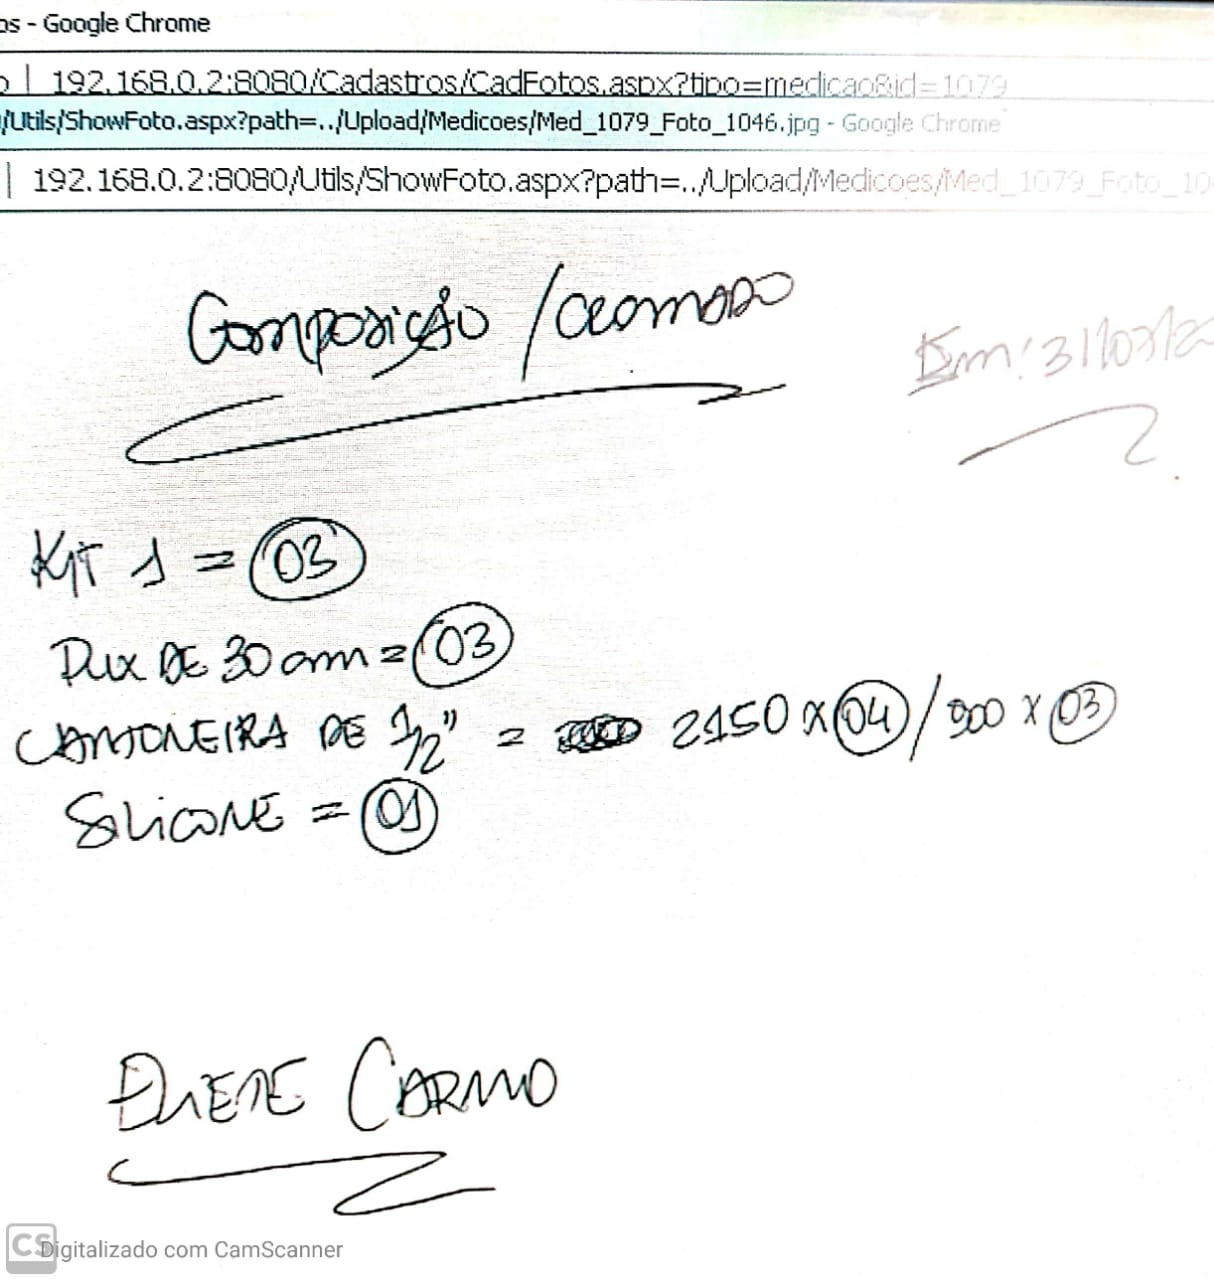 os - Google Chrome
192.168.0.2:8080/Cadastros/CadFotos.aspx?tipo=medicao&id=1079
/Utils/ShowFoto.aspx?path=../Upload/Medicoes/Med_1079_Foto_1046.jpg - Google Chrome
192.168.0.2:8080/Utils/ShowFoto.aspx?path=../Upload/Medicoes/Med_1079_Foto_10
Composição / cromado
Em: 31/03/2
Kit 1 = 03
Pux DE 30 cm = 03
CANTONEIRA DE 1/2" = 2150 x 04 / 900 x 03
SiLiCONE = 01
ELIETE CARMO
CS Digitalizado com CamScanner